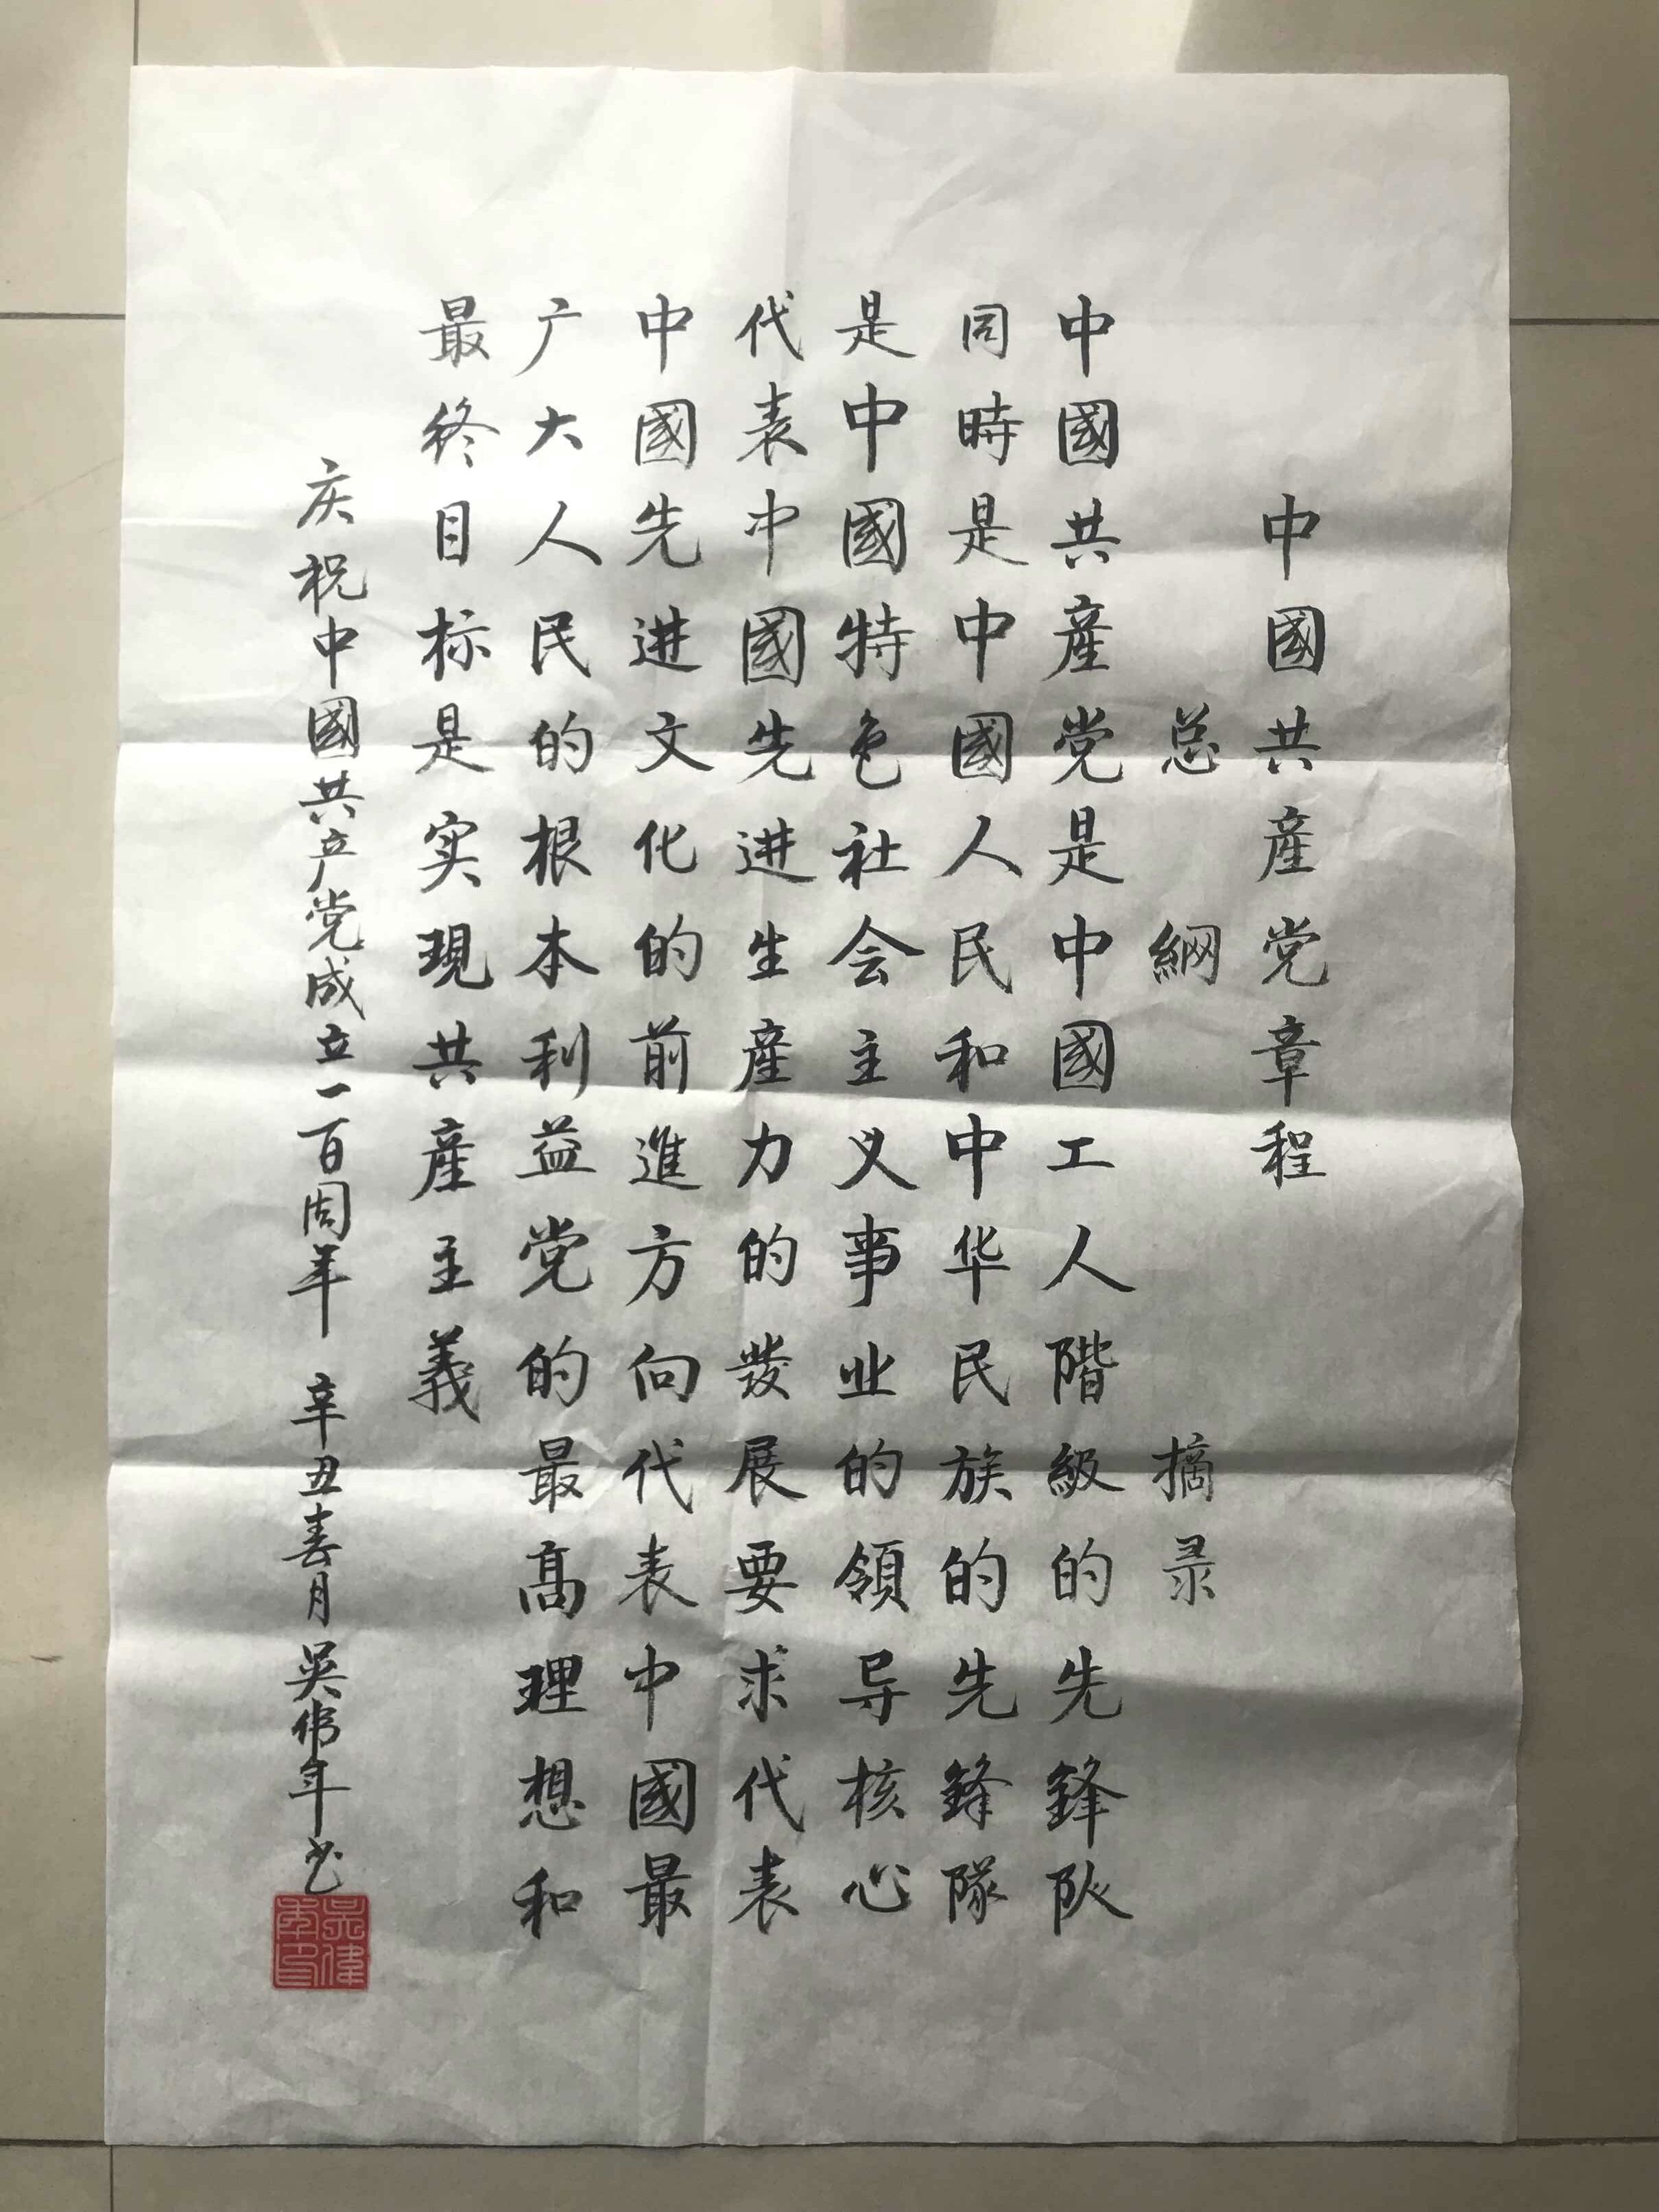 中國共産党章程
总綱 摘录
中國共産党是中國工人階級的先鋒队
同時是中國人民和中华民族的先鋒隊
是中國特色社会主义事业的領导核心
代表中國先进生産力的發展要求代表
中國先进文化的前進方向代表中國最
广大人民的根本利益党的最高理想和
最终目标是实現共産主義
庆祝中國共产党成立一百周年 辛丑春月吴偉年书
吴偉年印